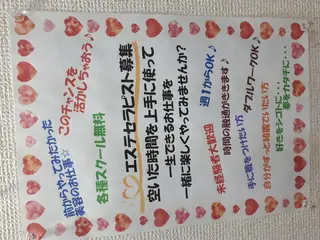 このチャンスを
活かしちゃおう♪
前からやってみたかった
美容のお仕事☆
各種スクール無料
エステセラピスト募集
空いた時間を上手に使って
一生できるお仕事を
一緒に楽しくやってみませんか?
週1からOK♪
時間の融通がききます♪
未経験者大歓迎
ダブルワークOK♪
手に職をつけたい方
自分がずっと綺麗でいたい方
好きをシゴトに・・・
夢をカタチに・・・